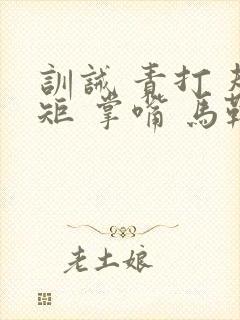 訓誡 責打
矩 掌嘴 馬
老土娘